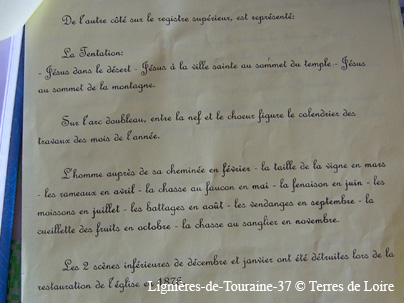 De l'autre côté sur le registre supérieur, est représenté:
La Tentation:
- Jésus dans le désert - Jésus à la ville sainte au sommet du temple - Jésus
au sommet de la montagne.
Sur l'arc doubleau, entre la nef et le choeur figure le calendrier des
travaux des mois de l'année.
L'homme auprès de sa cheminée en février - la taille de la vigne en mars
- les rameaux en avril - la chasse au faucon en mai - la fenaison en juin - les
moissons en juillet - les battages en août - les vendanges en septembre - la
cueillette des fruits en octobre - la chasse au sanglier en novembre.
Les 2 scènes inférieures de décembre et janvier ont été détruites lors de la
restauration de l'église en
Lignières-de-Touraine-37 © Terres de Loire